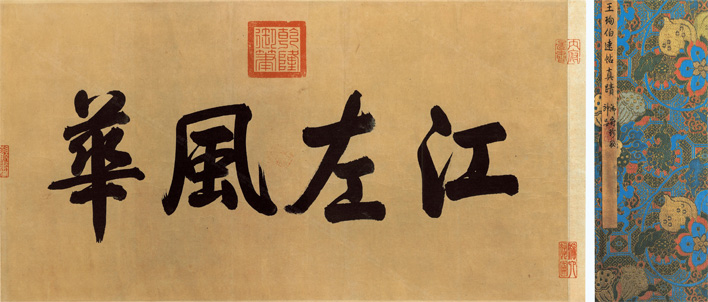 王珣伯遠帖真蹟
江左風華
乾隆御筆